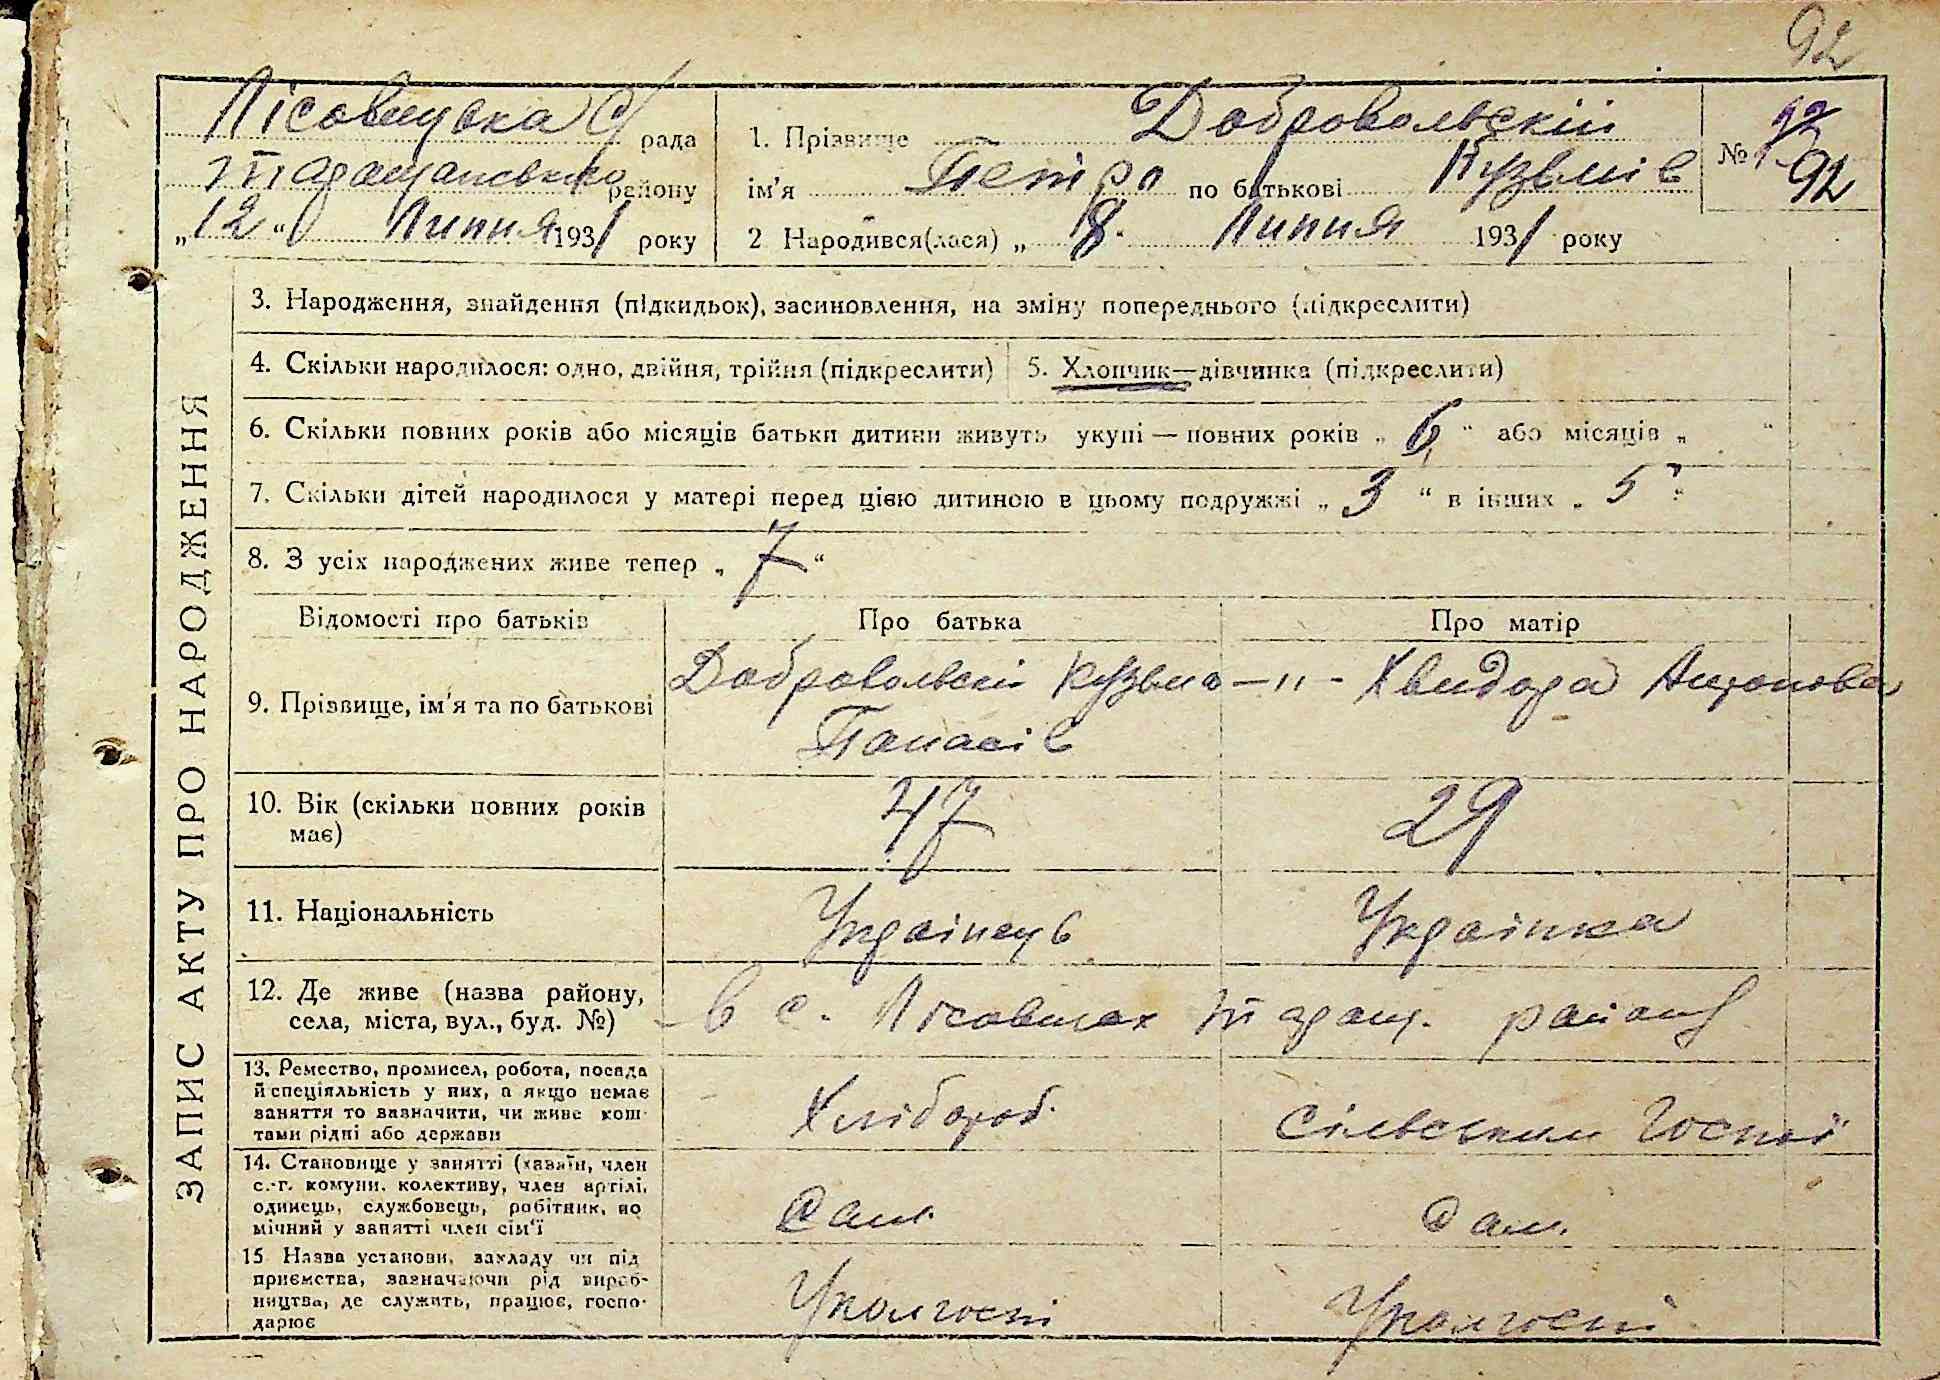 92
Лісовицька С/ рада
Таращанського району
„12“ Липня 1931 року
1. Прізвище Добровольскій
ім'я Петро по батькові Кузьмів
2 Народився(лася) „8. Липня 1931 року
№ 92
92
ЗАПИС АКТУ ПРО НАРОДЖЕННЯ
3. Народження, знайдення (підкидьок), засиновлення, на зміну попереднього (підкреслити)
4. Скільки народилося: одно, двійня, трійня (підкреслити)
5. Хлопчик—дівчинка (підкреслити)
6. Скільки повних років або місяців батьки дитини живуть укупі — повних років „6“ або місяців „ “
7. Скільки дітей народилося у матері перед цією дитиною в цьому подружжі „3“ в інших „5“
8. З усіх народжених живе тепер „7“
Відомості про батьків Про батька Про матір
9. Прізвище, ім'я та по батькові
Добровольскій Кузьма
Панасів
—„— Хвидора Антонова
10. Вік (скільки повних років
має)
47
29
11. Національність
Українець
Українка
12. Де живе (назва району,
села, міста, вул., буд. №)
в с. Лісовичах Таращ. району
13. Ремество, промисел, робота, посада
й спеціяльність у них, а якщо немає
заняття то визначити, чи живе кош-
тами рідні або держави
Хлібороб.
Сільським
14. Становище у занятті (хазяїн, член
с.-г. комуни, колективу, член артілі,
одинець, службовець, робітник, по
мічний у занятті член сім'ї
Сам.
Дом.
15 Назва установи, закладу чи під
приємства, зазначаючи рід вироб-
ництва, де служить, працює, госпо-
дарює
Уколгоспі
Уколгоспі